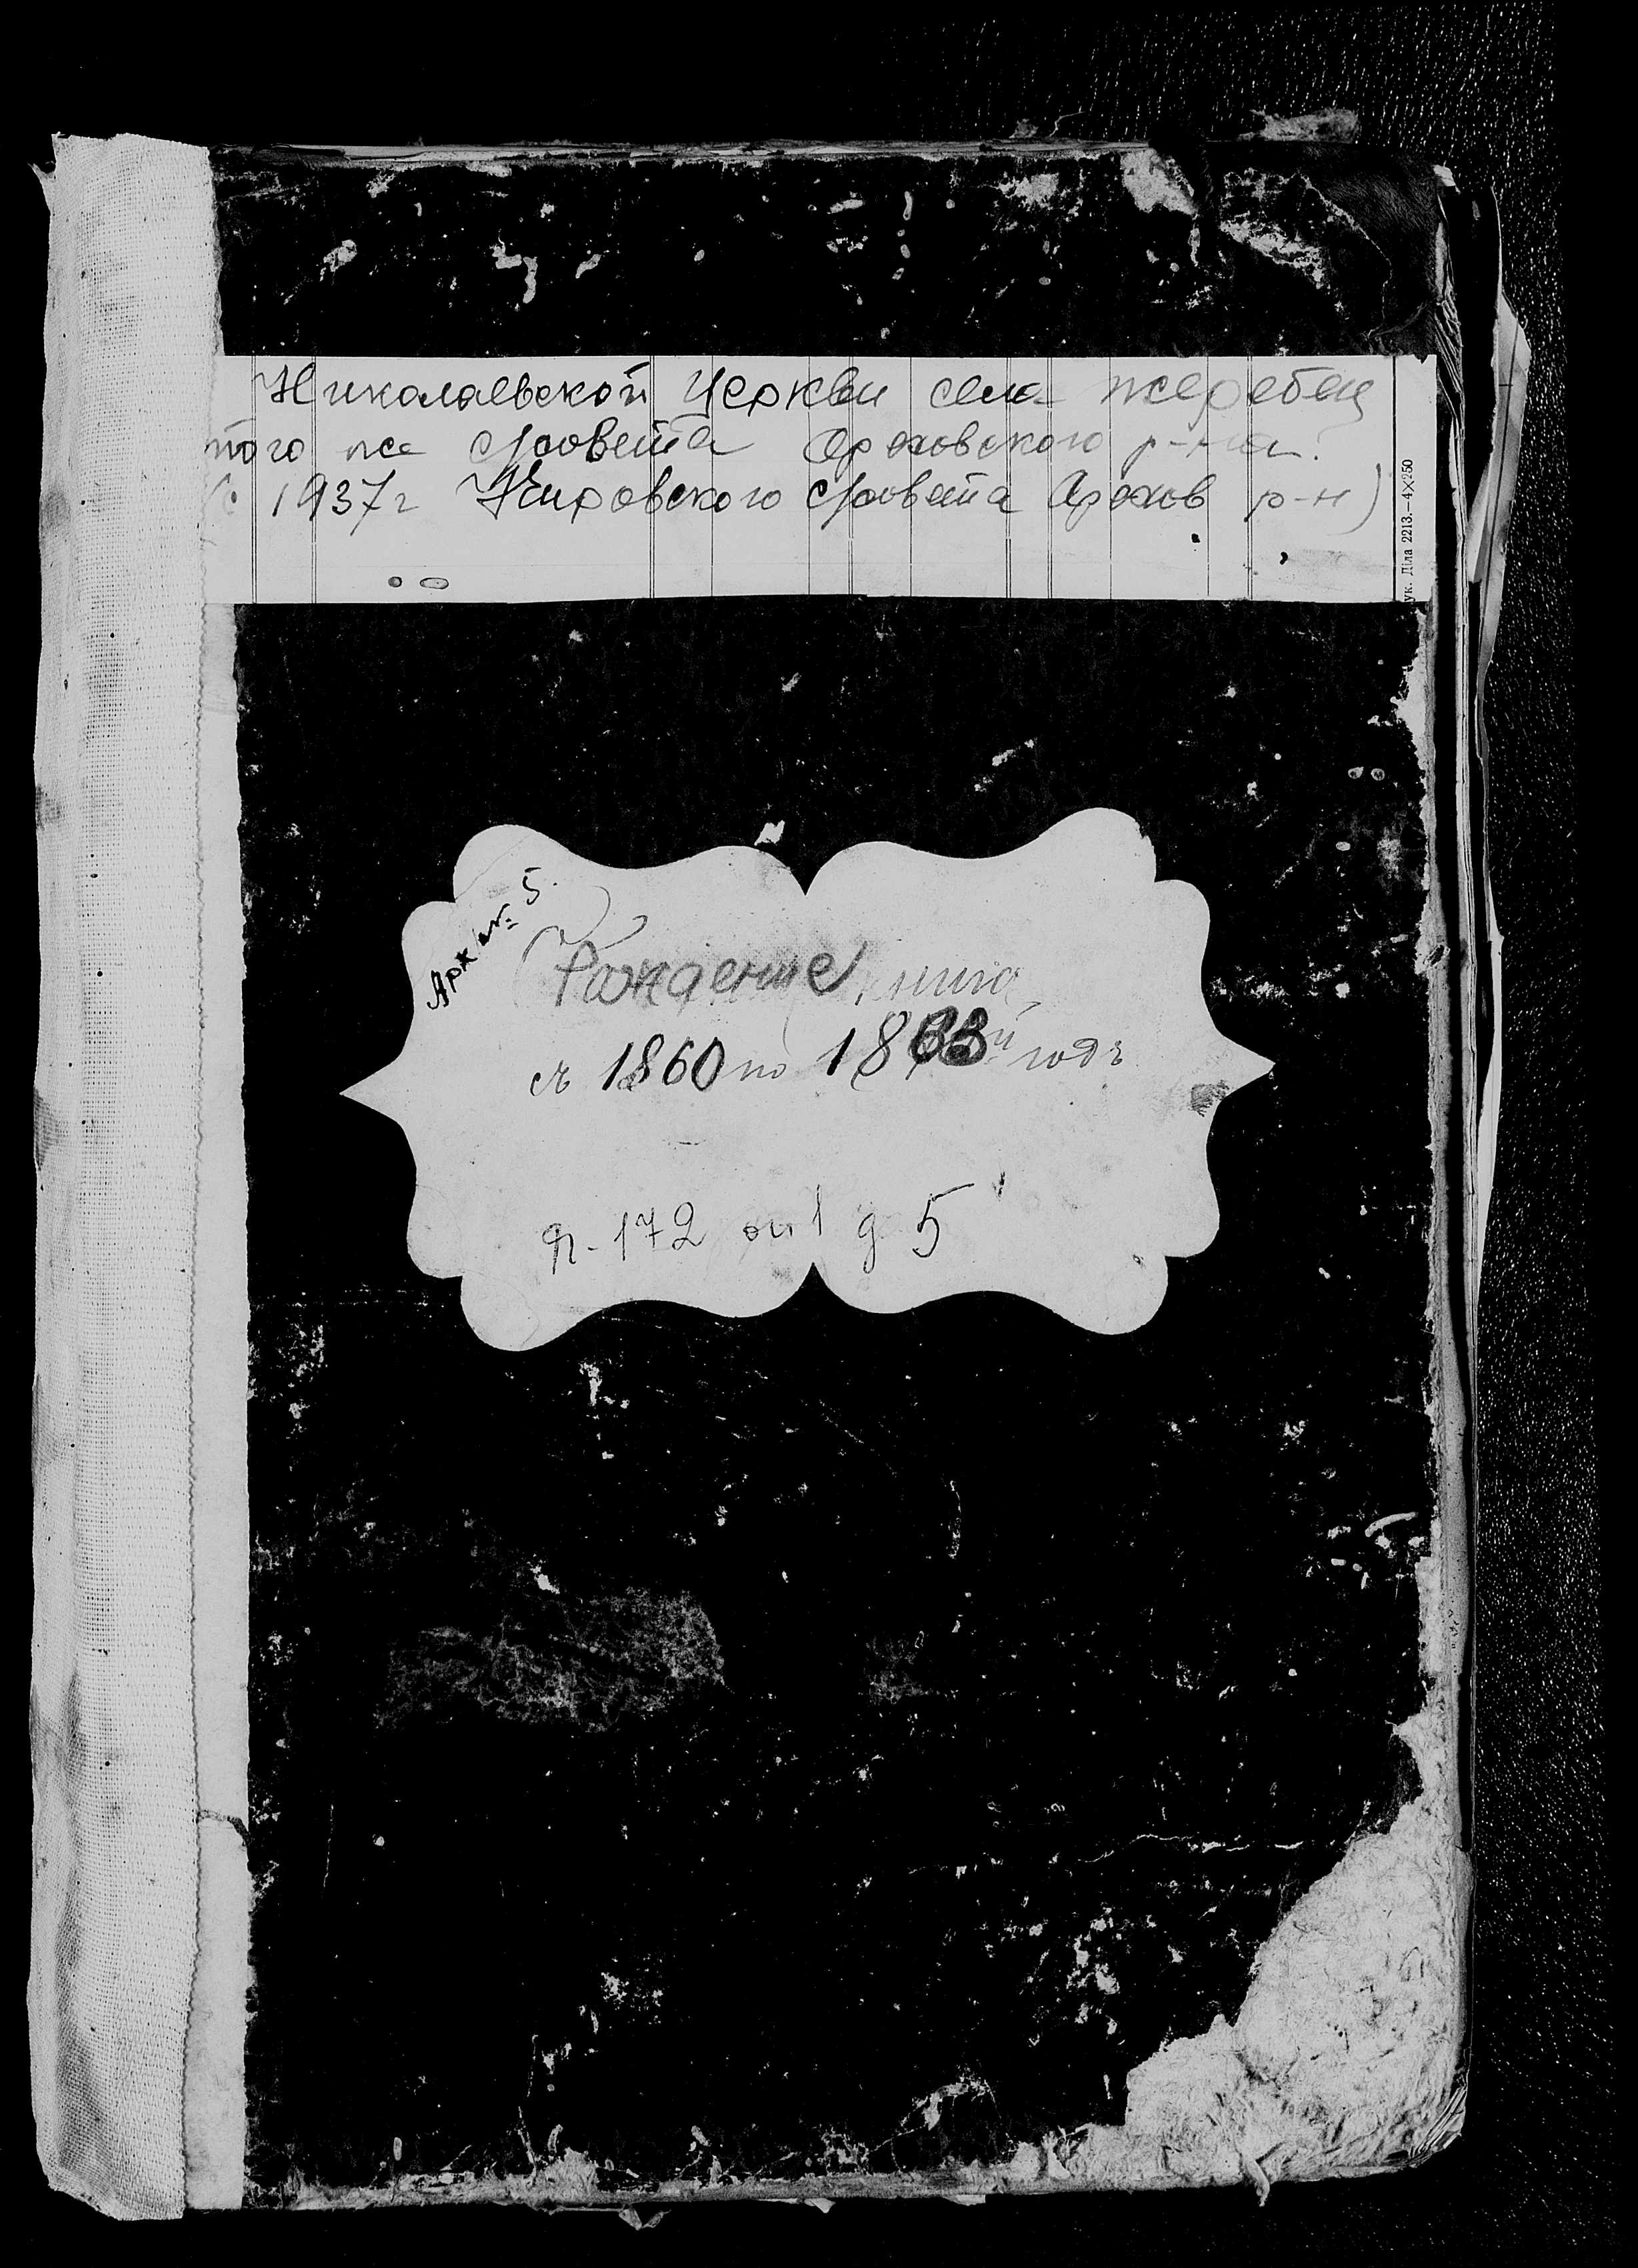 Николаевской церкви села Жеребец
того же с/совета Ореховского р-на.
(с 1937г Кировского с/совета Орехов р-н)
ук. Діла 2213.—4×250
Арх № 5.
Рождение книга
съ 1860 по 1863й годъ
ф. 172 оп 1 д 5